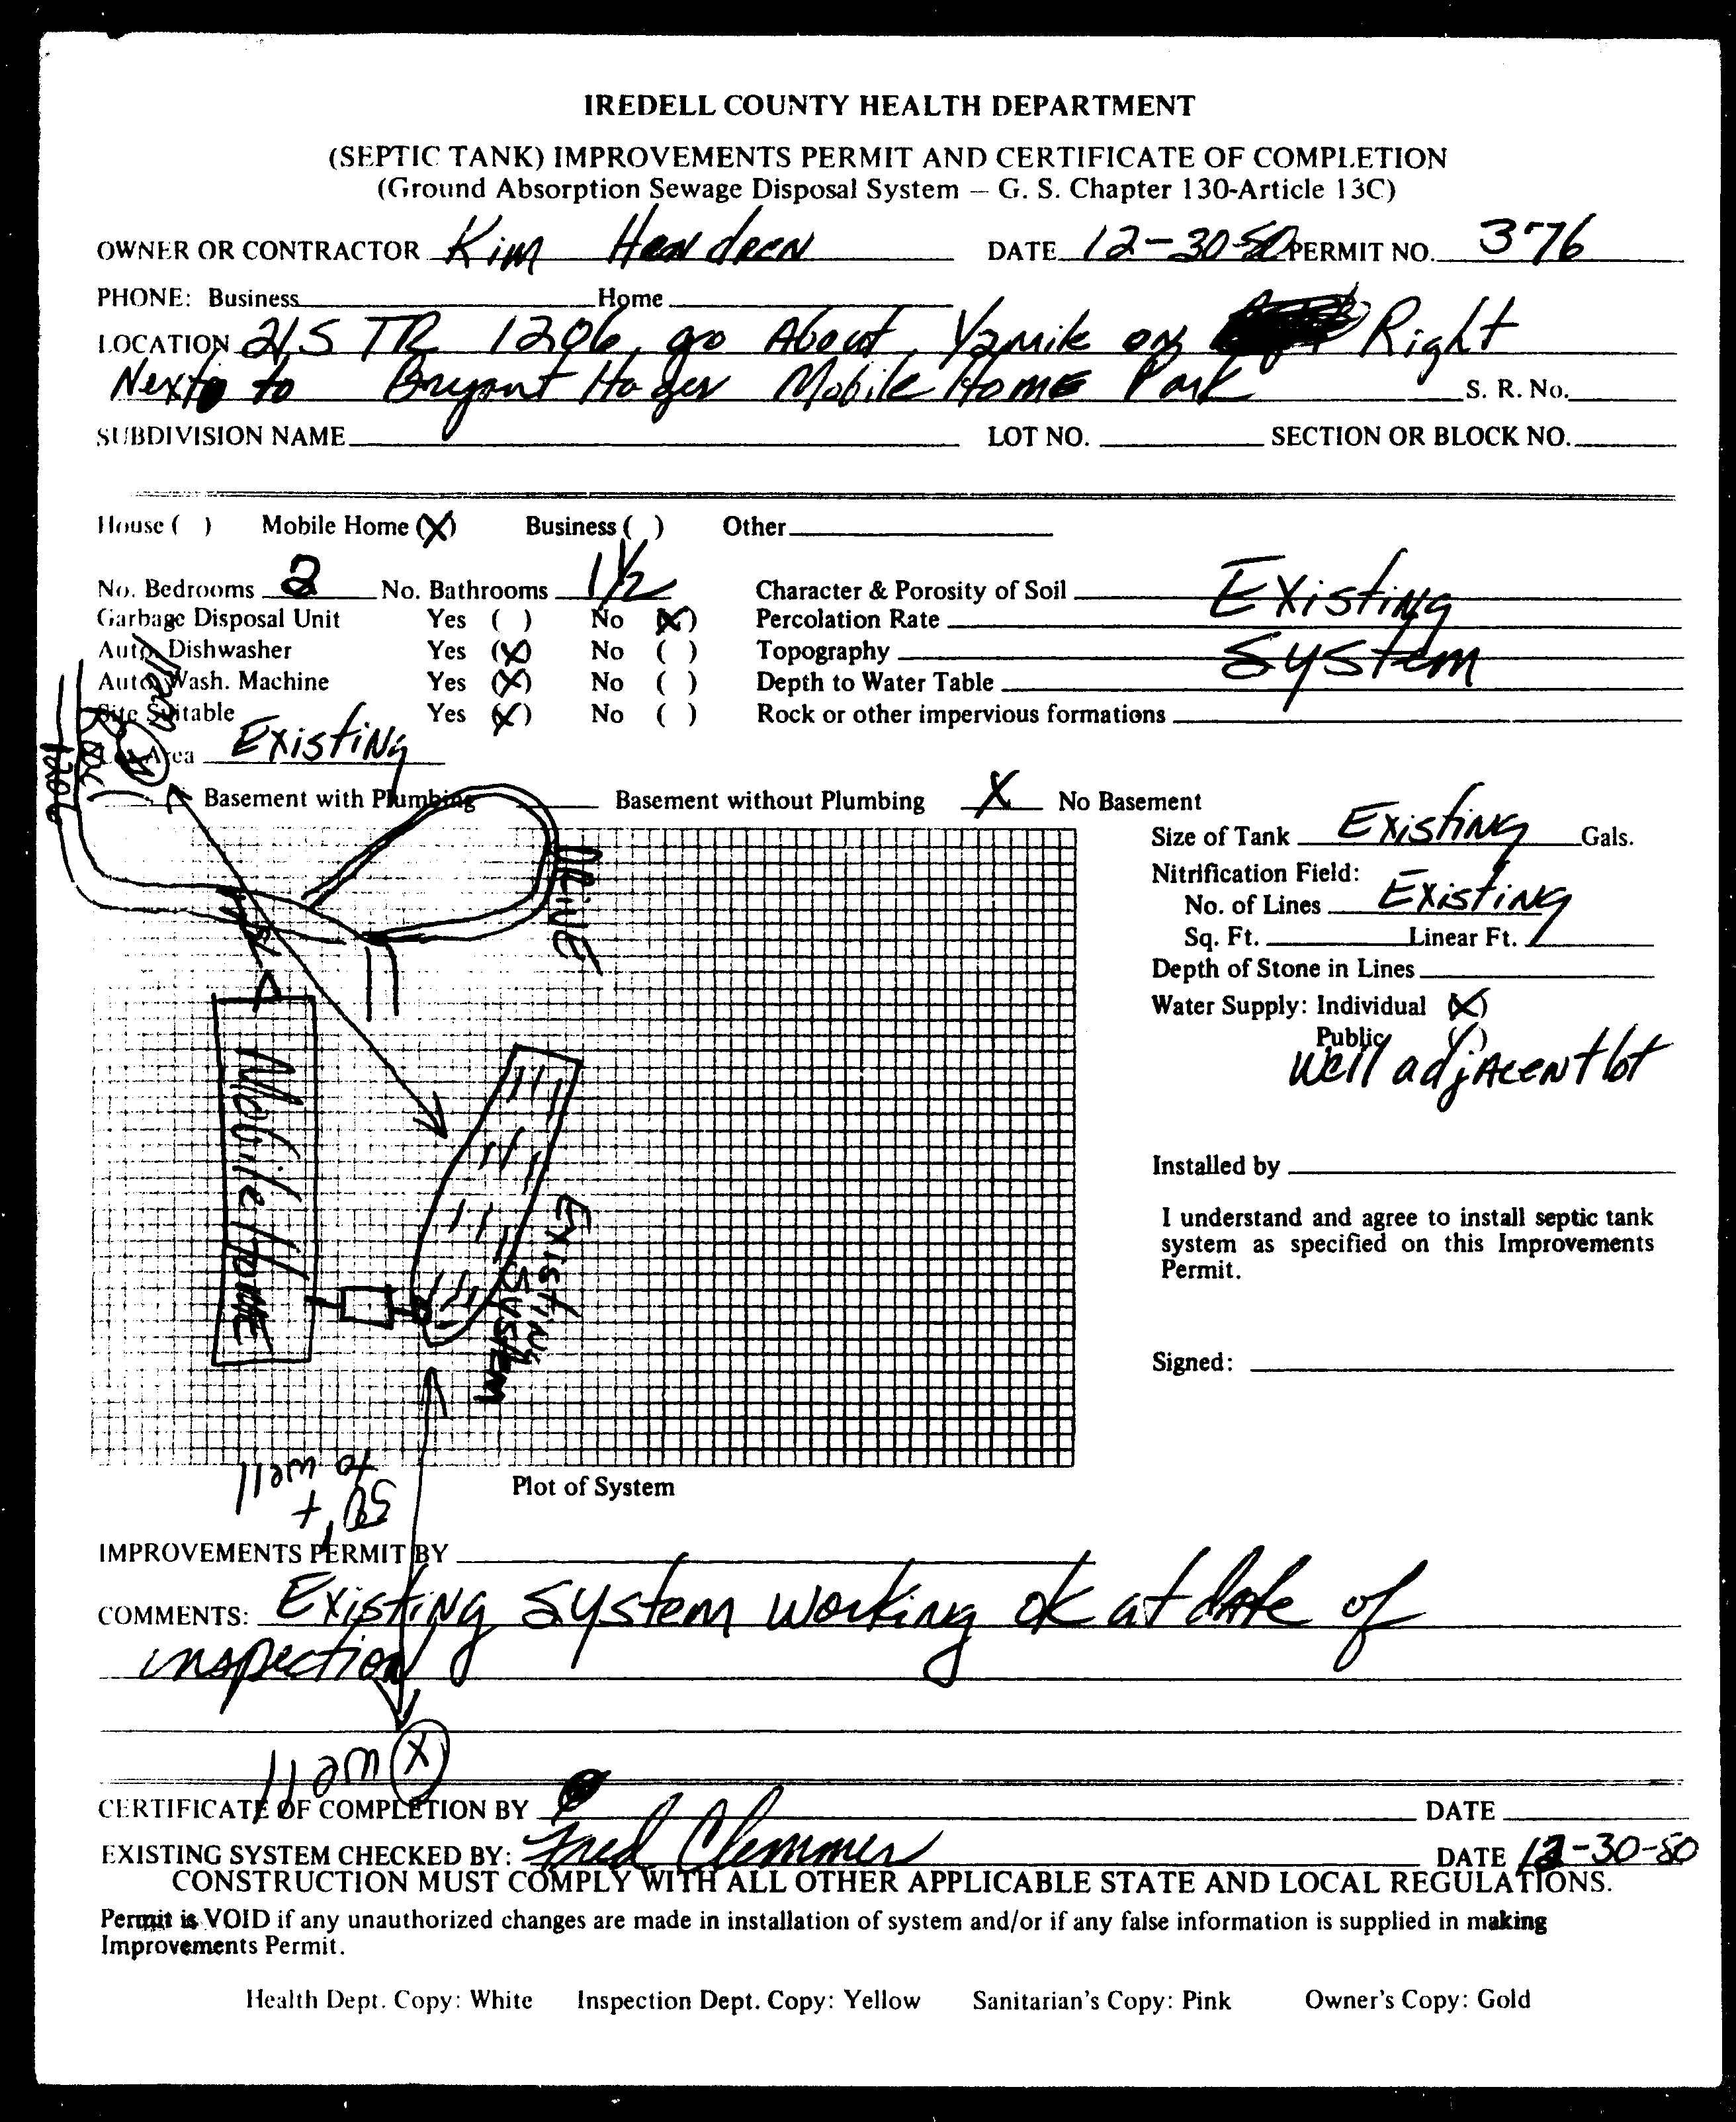 IREDELL COUNTY HEALTH DEPARTMENT
(SEPTIC TANK) IMPROVEMENTS PERMIT AND CERTIFICATE OF COMPLETION
(Ground Absorption Sewage Disposal System — G. S. Chapter 130-Article 13C)
OWNER OR CONTRACTOR Kim Hendren DATE 12-30-80 PERMIT NO. 376
PHONE: Business Home
LOCATION 21S TR 1206 go About 1/2 mile on Right
Next to Bryant Hager Mobile Home Park S. R. No.
SUBDIVISION NAME LOT NO. SECTION OR BLOCK NO.
House ( ) Mobile Home (X) Business ( ) Other
No. Bedrooms 2 No. Bathrooms 1 1/2 Character & Porosity of Soil Existing
Garbage Disposal Unit Yes ( ) No (X) Percolation Rate
Auto Dishwasher Yes (X) No ( ) Topography System
Auto Wash. Machine Yes (X) No ( ) Depth to Water Table
Site Suitable Yes (X) No ( ) Rock or other impervious formations
Area Existing
Basement with Plumbing Basement without Plumbing X No Basement
Road
1206
well
X
DRIVE
Mobile Home
Existing
System
50'+
to well
Plot of System
Size of Tank Existing Gals.
Nitrification Field:
No. of Lines Existing
Sq. Ft. Linear Ft.
Depth of Stone in Lines
Water Supply: Individual (X)
Public ( )
Well adjacent lot
Installed by
I understand and agree to install septic tank
system as specified on this Improvements
Permit.
Signed:
IMPROVEMENTS PERMIT BY
COMMENTS: Existing System working ok at date of
inspection
well X
CERTIFICATE OF COMPLETION BY DATE
EXISTING SYSTEM CHECKED BY: Fred Clemmer DATE 12-30-80
CONSTRUCTION MUST COMPLY WITH ALL OTHER APPLICABLE STATE AND LOCAL REGULATIONS.
Permit is VOID if any unauthorized changes are made in installation of system and/or if any false information is supplied in making
Improvements Permit.
Health Dept. Copy: White Inspection Dept. Copy: Yellow Sanitarian's Copy: Pink Owner's Copy: Gold